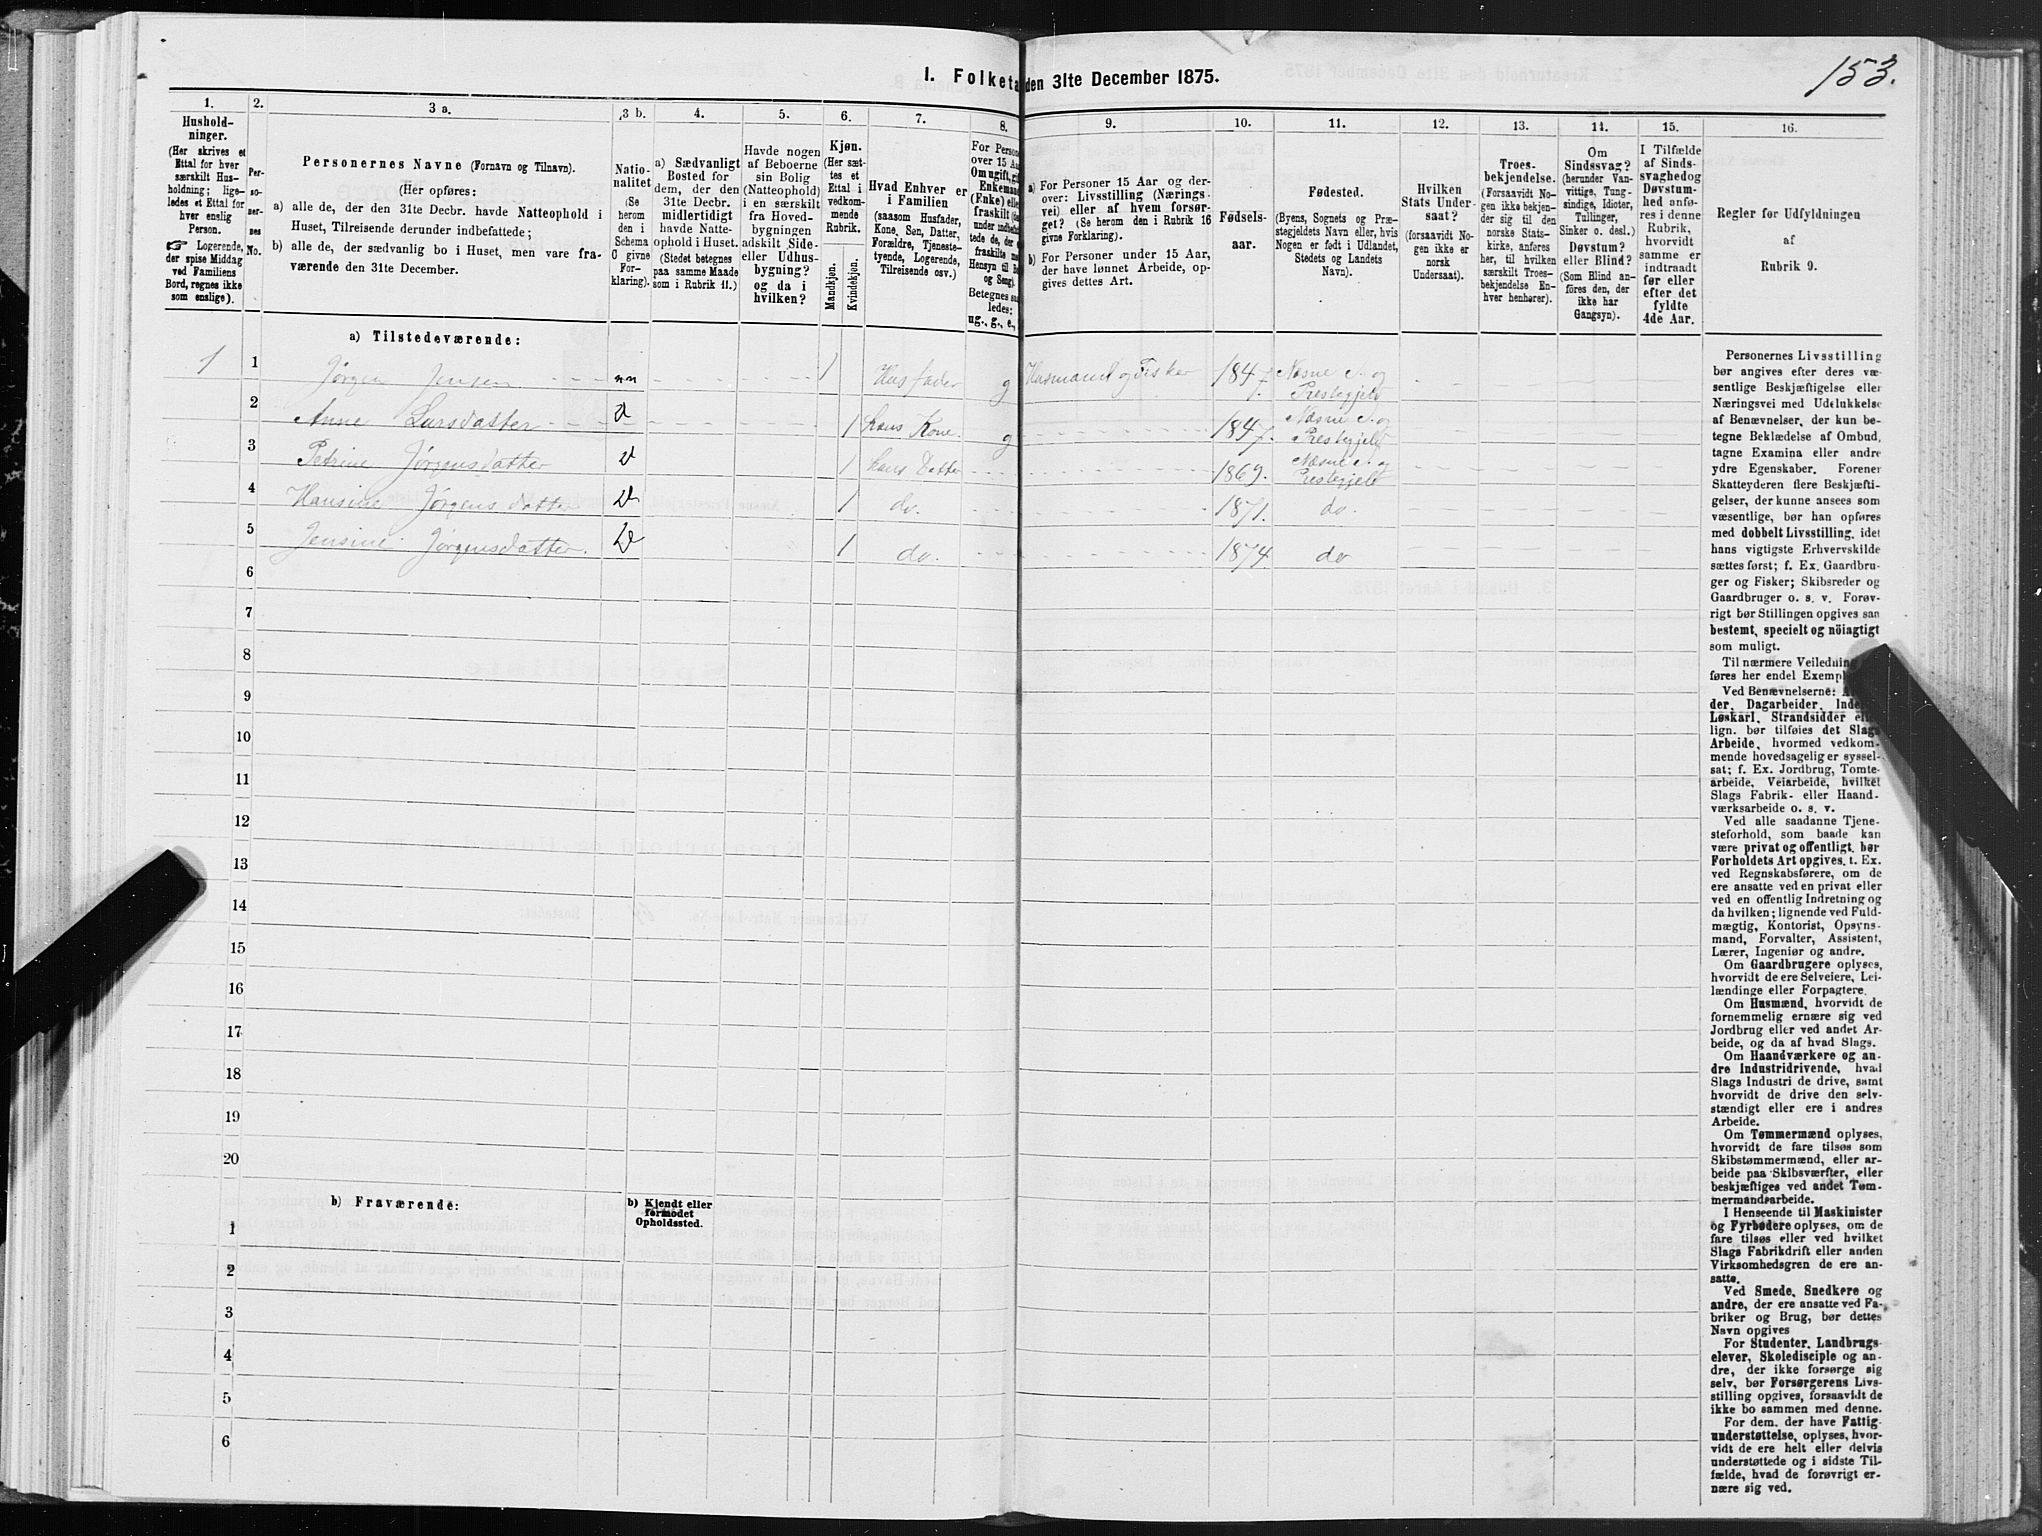 I. Folketa den 31te December 1875.
153.
1.
Hushold-
ninger.
(Her skrives et
Ettal for hver
særskilt Hus-
holdning; lige-
ledes et Ettal for
hver enslig
Person.
☞ Logerende,
der spise Middag
ved Familiens
Bord, regnes ikke
som enslige).
2.
Per-
so-
ner-
nes
No.
3 a.
Personernes Navne (Fornavn og Tilnavn).
(Her opføres:
a) alle de, der den 31te Decbr. havde Natteophold i
Huset, Tilreisende derunder indbefattede;
b) alle de, der sædvanlig bo i Huset, men vare fra-
værende den 31te December.
3 b.
Natio-
nalitet
(Se
herom
den i
Schema
O givne
For-
klaring).
4.
a) Sædvanligt
Bosted for
dem, der den
31te Decbr.
midlertidigt
havde Natte-
ophold i Huset.
(Stedet betegnes
paa samme Maade
som i Rubrik 11.)
5.
Havde nogen
af Beboerne
sin Bolig
(Natteophold)
i en særskilt
fra Hoved-
bygningen
adskilt Side-
eller Udhus-
bygning?
og da i
hvilken?
6.
Kjøn.
(Her sæt-
tes et
Ettal i
vedkom-
mende
Rubrik.
Mandkjøn.
Kvindekjøn.
7.
Hvad Enhver er
i Familien
(saasom Husfader,
Kone, Søn, Datter,
Forældre, Tjeneste-
tyende, Logerende,
Tilreisende osv.)
8.
For Person
over 15 Aa
Om ugift, gif
Enkemand
(Enke) elle
fraskilt
under indbefat-
tede de, der
fraskilte
Hensyn til B
og Seng)
Betegnes
ledes:
ug., g., e.,
9.
a) For Personer 15 Aar og der-
over: Livsstilling (Nærings-
vei) eller af hvem forsør-
get? (Se herom den i Rubrik 16
givne Forklaring).
b) For Personer under 15 Aar,
der have lønnet Arbeide, op-
gives dettes Art.
10.
Fødsels-
aar.
11.
Fødested.
(Byens, Sognets og Præ-
stegjeldets Navn eller, hvis
Nogen er født i Udlandet,
Stedets og Landets
Navn).
12.
Hvilken
Stats Under-
saat?
(forsaavidt No-
gen ikke er
norsk
Undersaat).
13.
Troes-
bekjendelse.
(Forsaavidt No-
gen ikke bekjen-
der sig til den
norske Stats-
kirke, anføres
her, til hvilken
særskilt Troes-
bekjendelse En-
hver henhører).
14.
Om
Sindssvag?
(herunder Van-
vittige, Tung-
sindige, Idioter,
Tullinger,
Sinker o. desl.)
Døvstum?
eller Blind?
(Som Blind an-
føres den, der
ikke har
Gangsyn).
15.
I Tilfælde
af Sinds-
svaghed og
Døvstum-
hed anfø-
res i denne
Rubrik,
hvorvidt
samme er
indtraadt
før eller
efter det
fyldte
4de Aar.
16.
Regler for Udfyldningen
af
Rubrik 9.
a) Tilstedeværende:
1 1 Jørgen Jensen nn 1 Husfader g Husmand og Fisker 1847. Næsne S. og Prestegjeld
2 Anne Larsdatter 1 hans Kone. g 1847. Næsne S. og Prestegjeld
3 Petrine Jørgensdatter 1 hans Datter 1869. Næsne S. og Prestegjeld
4 Hansine Jørgensdatter 1 do. 1871. do.
5 Jensine Jørgensdatter. 1 do. 1874. do
6
7
8
9
10
11
12
13
14
15
16
17
18
19
20
b) Fraværende:
b) Kjendt eller
formodet
Opholdssted.
1
2
3
4
5
6
Personernes Livsstilling
bør angives efter deres væ-
sentlige Beskjæftigelse eller
Næringsvei med Udelukkelse
af Benævnelser, der kun be-
tegne Beklædelse af Ombud,
tagne Examina eller andre
ydre Egenskaber. Forener
Skatteyderen flere Beskjæfti-
gelser, der kunne ansees som
væsentlige, bør han opføres
med dobbelt Livsstilling, idet
hans vigtigste Erhvervskilde
sættes først; f. Ex. Gaardbru-
ger og Fisker; Skibsreder og
Gaardbruger o. s. v. Forøv-
rigt bør Stillingen opgives saa
bestemt, specielt og nöiagtigt
som muligt.
Til nærmere Veiledning
føres her endel Exemp
Ved Benævnelserne:
der, Dagarbeider, Inde
Løskarl, Strandsidder el
lign. bør tilføies det Slags
Arbeide, hvormed vedkom-
mende hovedsagelig er syssel-
sat; f. Ex. Jordbrug, Tomte-
arbeide, Veiarbeide, hvilket
Slags Fabrik- eller Haand-
værksarbeide o. s. v.
Ved alle saadanne Tjene-
steforhold, som baade kan
være privat og offentligt, bør
Forholdets Art opgives, t. Ex.
ved Regnskabsførere, om de
ere ansatte ved en privat eller
ved en offentlig Indretning og
da hvilken; lignende ved Fuld-
mægtig, Kontorist, Opsyns-
mand, Forvalter, Assistent,
Lærer, Ingeniør og andre.
Om Gaardbrugere oplyses,
hvorvidt de ere Selveiere, Lei-
lændinge eller Forpagtere.
Om Husmænd, hvorvidt de
fornemmelig ernære sig ved
Jordbrug eller ved andet Ar-
beide, og da af hvad Slags.
Om Haandværkere og an-
dre Industridrivende, hvad
Slags Industri de drive, samt
hvorvidt de drive den selv-
stændigt eller ere i andres
Arbeide.
Om Tømmermænd oplyses,
hvorvidt de fare tilsøs som
Skibstømmermænd, eller ar-
beide paa Skibsværfter, eller
beskjæftiges ved andet Tøm-
mermandsarbeide.
I Henseende til Maskinister
og Fyrbødere oplyses, om de
fare tilsøs eller ved hvilket
Slags Fabrikdrift eller anden
Virksomhedsgren de ere an-
satte.
Ved Smede, Snedkere og
andre, der ere ansatte ved Fa-
briker og Brug, bør dettes
Navn opgives
For Studenter, Landbrugs-
elever, Skoledisciple og an-
dre, der ikke forsørge sig
selv, bør Forsørgerens Livs-
stilling opgives, forsaavidt de
ikke bo sammen med denne.
For dem, der have Fattig-
understøttelse, oplyses, hvor-
vidt de ere helt eller delvis
understøttede og i sidste Til-
fælde, hvad de forøvrigt er-
nære sig ved.